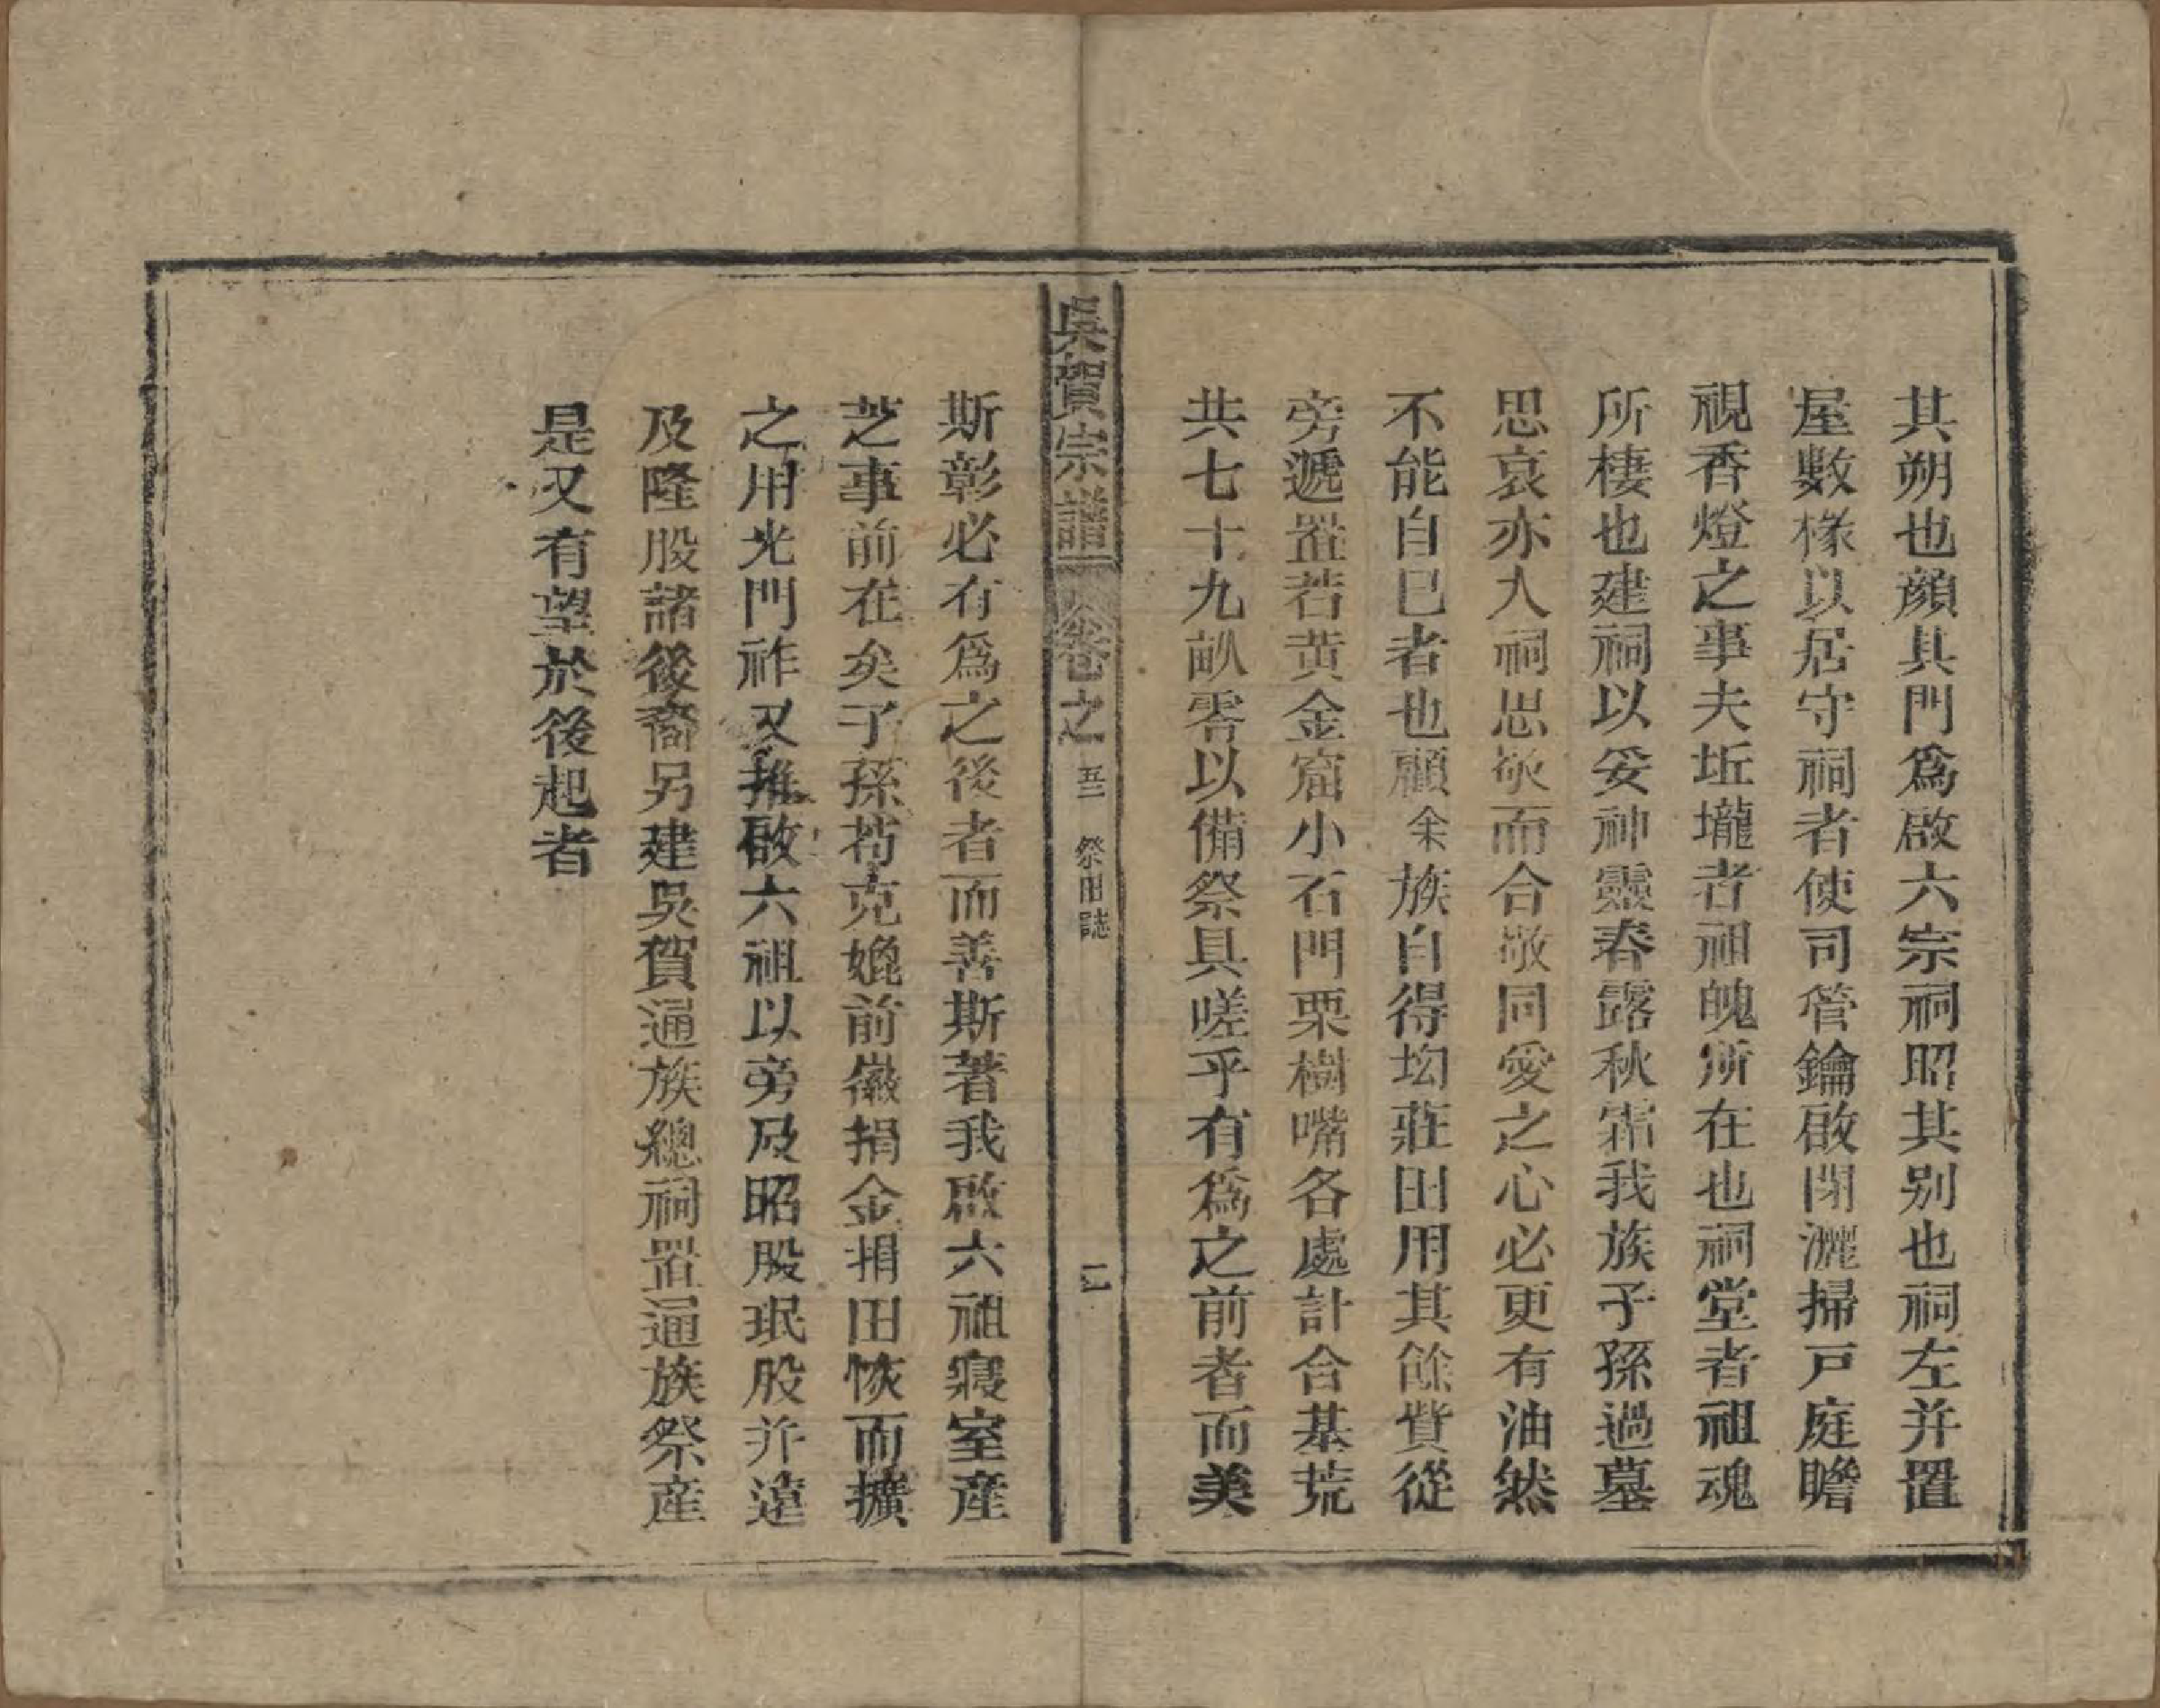 其朔也顏其門爲啟六宗祠昭其别也祠左并置
屋數椽以居守祠者使司管鑰啟閉灑掃戸庭瞻
視香燈之事夫坵壠者祖魄所在也祠堂者祖魂
所棲也建祠以妥神靈春露秋霜我族子孫過墓
思哀亦入祠思敬而合敬同愛之心必更有油然
不能自已者也顧余族自得坳莊田用其餘貲從
旁遞置若黄金窟小石門栗樹嘴各處計合基荒
共七十九畝零以備祭具嗟乎有爲之前者而美
吳賀宗譜 卷之 五二 祭田誌 二
斯彰必有爲之後者而善斯著我啟六祖寢室産
芝事前在矣子孫苟克媲前徽捐金捐田恢而擴
之用光門祚又推啟六祖以旁及昭股珉股并遠
及隆股諸後裔另建吳賀通族總祠置通族祭産
是又有望於後起者